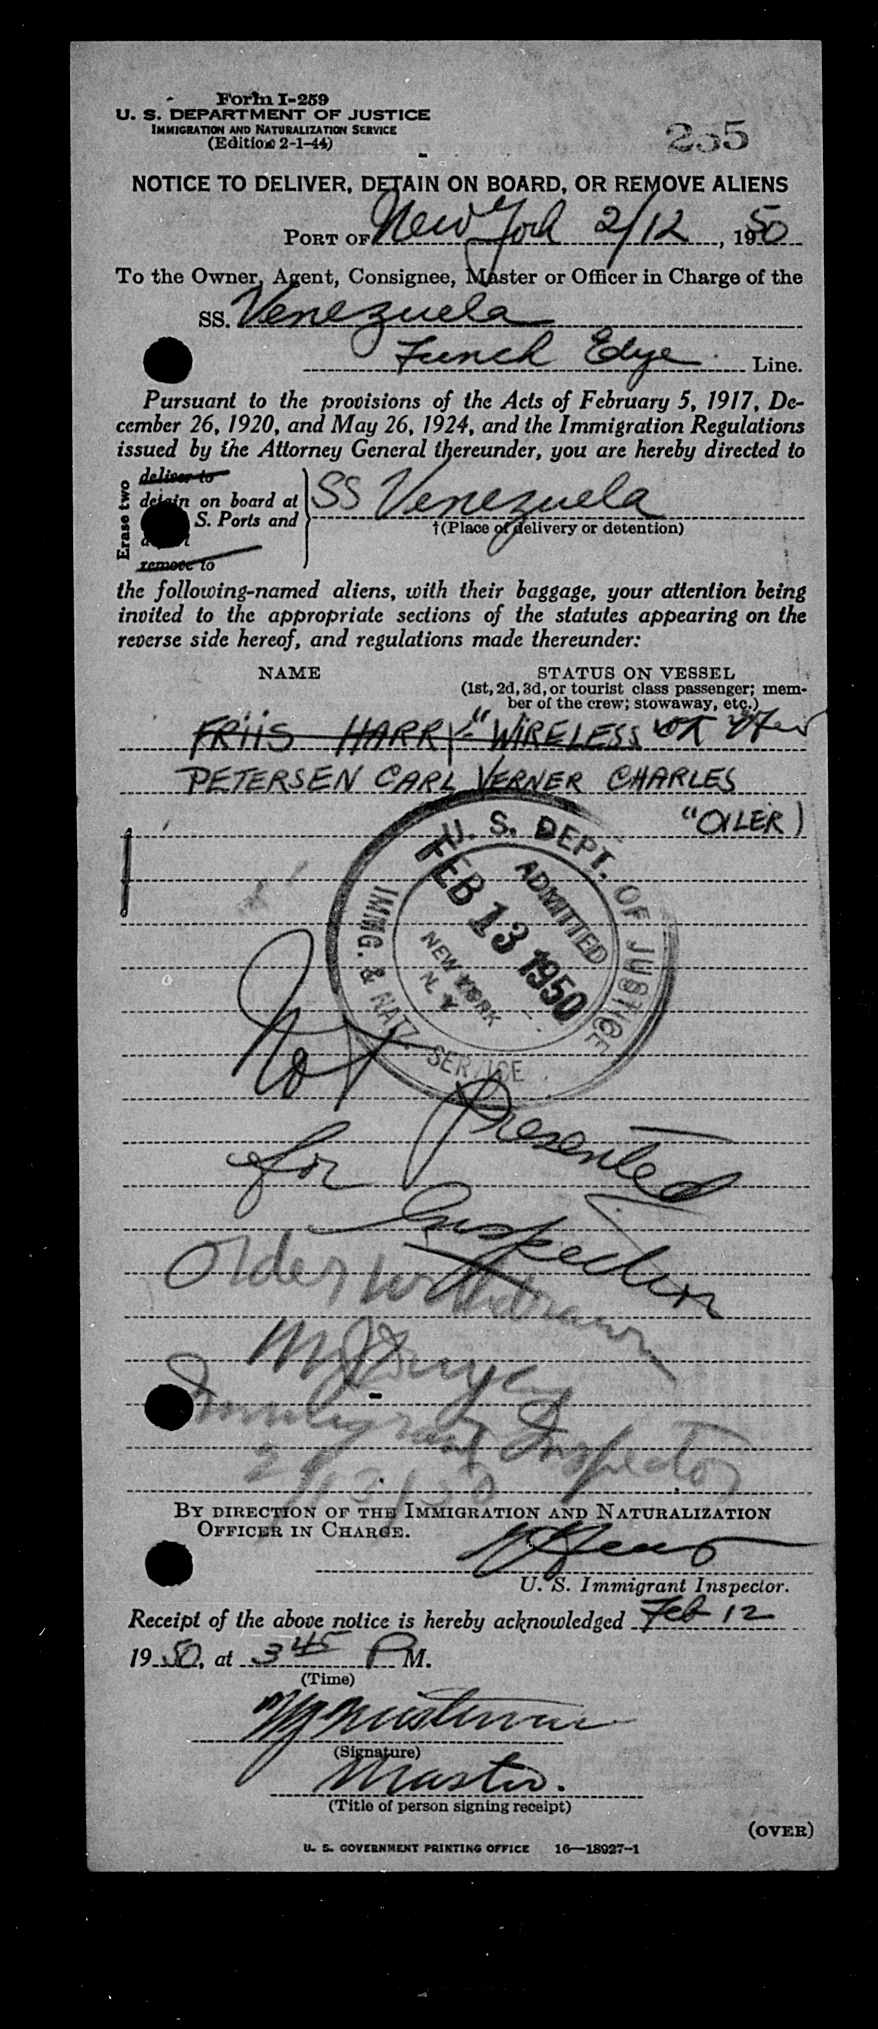 Form I-259
U. S. DEPARTMENT OF JUSTICE
IMMIGRATION AND NATURALIZATION SERVICE
(Edition 2-1-44)
255
NOTICE TO DELIVER, DETAIN ON BOARD, OR REMOVE ALIENS
PORT OF New York 2/12, 1950
To the Owner, Agent, Consignee, Master or Officer in Charge of the
SS. Venezuela
Funch Edye Line.
Pursuant to the provisions of the Acts of February 5, 1917, De-
cember 26, 1920, and May 26, 1924, and the Immigration Regulations
issued by the Attorney General thereunder, you are hereby directed to
Erase two
deliver to
detain on board at
S. Ports and
remove to
SS Venezuela
†(Place of delivery or detention)
the following-named aliens, with their baggage, your attention being
invited to the appropriate sections of the statutes appearing on the
reverse side hereof, and regulations made thereunder:
NAME
STATUS ON VESSEL
(1st, 2d, 3d, or tourist class passenger; mem-
ber of the crew; stowaway, etc.)
FRIIS HARRY "WIRELESS
PETERSEN CARL VERNER CHARLES
"OILER)
U. S. DEPT. OF JUSTICE
ADMITTED
FEB 13 1950
NEW YORK
N. Y.
IMMG. & NATZ. SERVICE
Not Presented
for Inspection
Order withdrawn
Immigrant Inspector
2/13/50
BY DIRECTION OF THE IMMIGRATION AND NATURALIZATION
OFFICER IN CHARGE.
U. S. Immigrant Inspector.
Receipt of the above notice is hereby acknowledged Feb 12
1950, at 3 45 P M.
(Time)
(Signature)
Master.
(Title of person signing receipt)
(OVER)
U. S. GOVERNMENT PRINTING OFFICE 16—18927-1